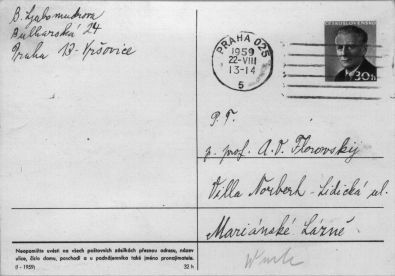 B. Ljubomudrova
Bulharská 24
Praha 13-Vršovice
PRAHA 025
1959
22-VIII
13-14
5
ČESKOSLOVENSKO
30 h
P. T.
p. prof. A. V. Florovskij
Villa Norbert - Lidická ul.
Mariánské Lázně
Neopomiňte uvést na všech poštovních zásilkách přesnou adresu, název
ulice, číslo domu, poschodí a u podnájemníka také jméno pronajímatele.
(I - 1959) 32 h